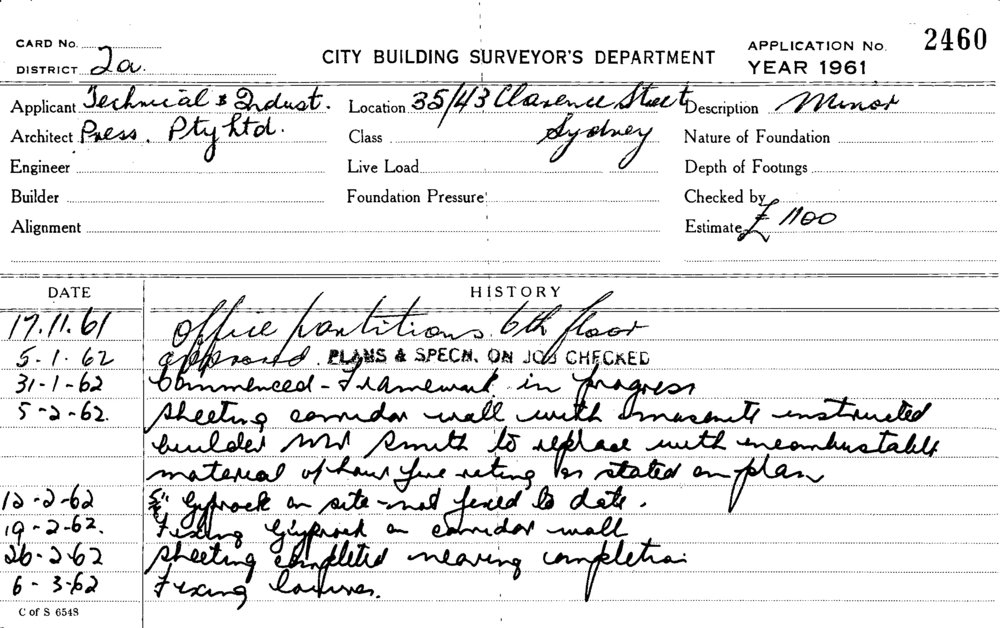 CARD No.
DISTRICT 2a.
CITY BUILDING SURVEYOR'S DEPARTMENT
APPLICATION No. 2460
YEAR 1961
Applicant Technical & Indust. Location 35/43 Clarence Street Description Minor
Architect Press. Pty Ltd. Class Sydney Nature of Foundation
Engineer Live Load Depth of Footings
Builder Foundation Pressure Checked by
Alignment Estimate £1100
DATE HISTORY
17.11.61 Office partitions 6th floor
5-1-62 approved. PLANS & SPECN. ON JOB CHECKED
31-1-62 Commenced - Framework in progress
5-2-62. sheeting corridor wall with masonite instructed
builder Mr Smith to replace with incombustable
material hour fire rating as stated on plan
12-2-62 Gyprock on site - not fixed to date.
19-2-62. Fixing Gyprock on corridor wall
26-2-62 sheeting completed nearing completion
6-3-62 Fixing louvres.
C of S 6548